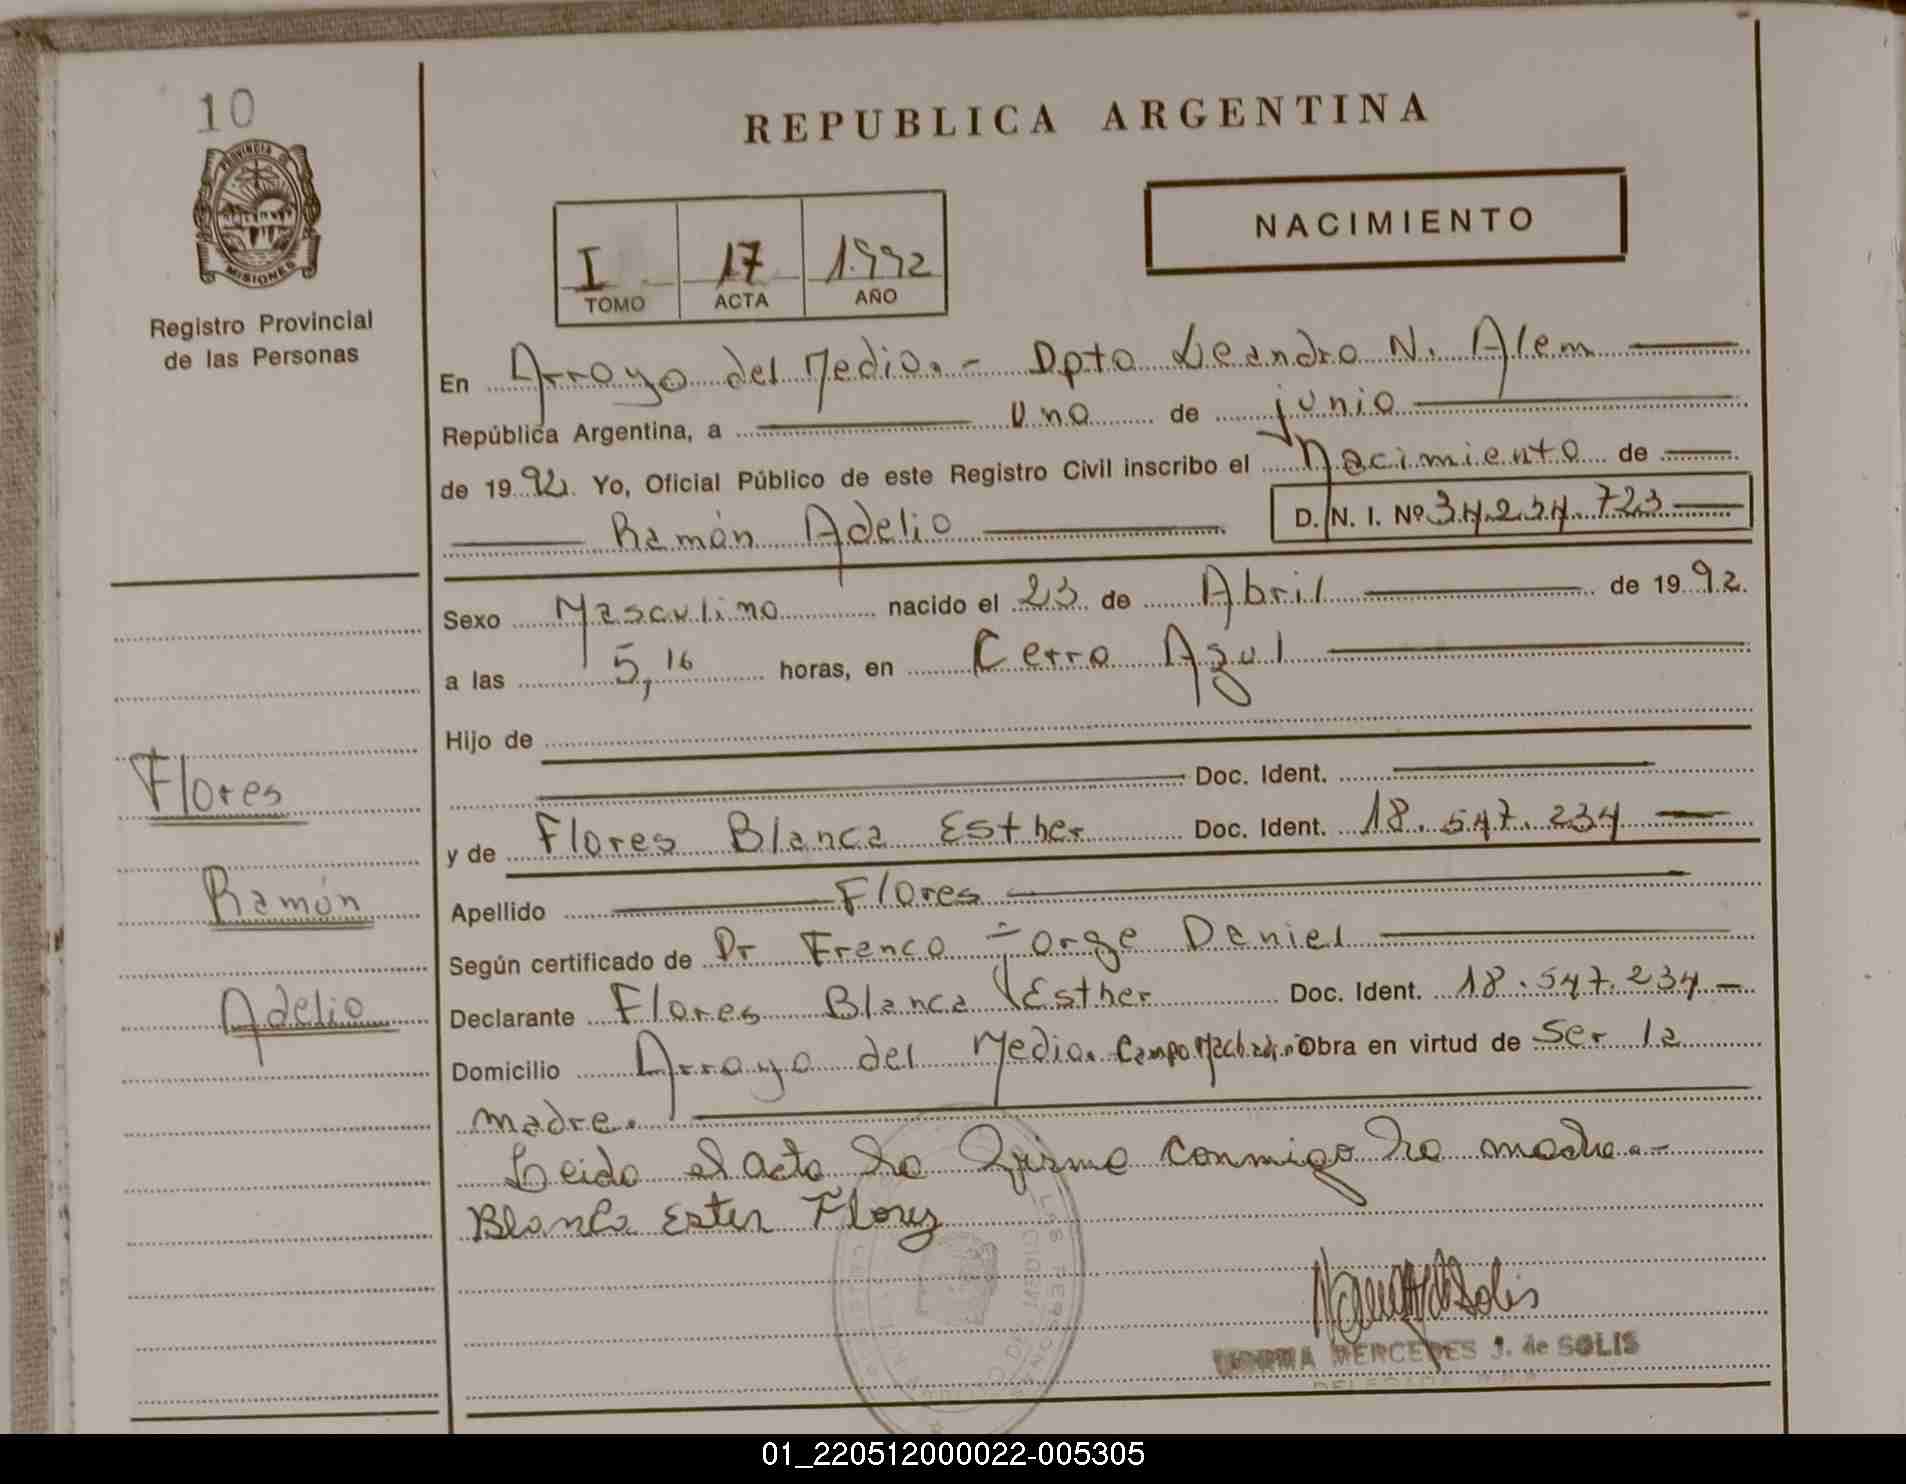 10
PROVINCIA DE
MISIONES
Registro Provincial
de las Personas
Flores
Ramón
Adelio
REPUBLICA ARGENTINA
NACIMIENTO
I 17 1.992
TOMO ACTA AÑO
En Arroyo del Medio.- Dpto Leandro N. Alem
República Argentina, a uno de junio
de 1992. Yo, Oficial Público de este Registro Civil inscribo el Nacimiento de
Ramón Adelio D. N. I. Nº 34.234.723
Sexo Masculino nacido el 23 de Abril de 1992.
a las 5,16 horas, en Cerro Azul
Hijo de
Doc. Ident.
y de Flores Blanca Esther Doc. Ident. 18.547.234
Apellido Flores
Según certificado de Dr Franco Jorge Daniel
Declarante Flores Blanca Esther Doc. Ident. 18.547.234
Domicilio Arroyo del Medio. Campo Obra en virtud de Ser la
madre.
Leido el acta la firma conmigo la madre.-
Blanca Ester Flores
MERCEDES J. de SOLIS
01_220512000022-005305